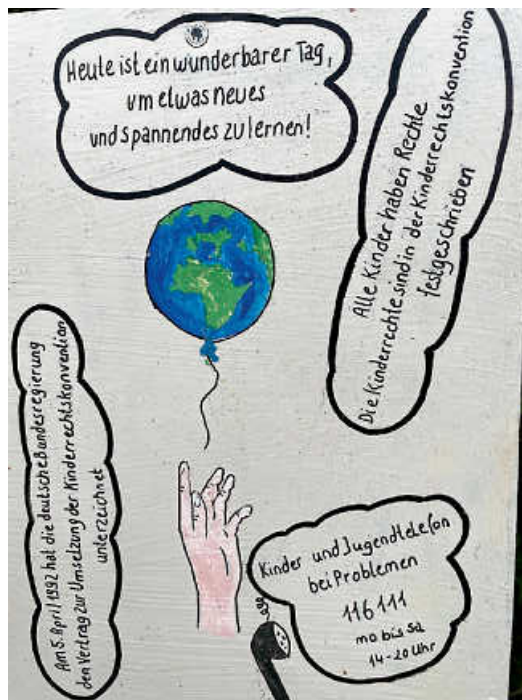 Heute ist ein wunderbarer Tag,
um etwas neues
und spannendes zu lernen!
Alle Kinder haben Rechte
Die Kinderrechte sind in der Kinderrechtskonvention
festgeschrieben
Am 5. April 1992 hat die deutsche Bundesregierung
den Vertrag zur Umsetzung der Kinderrechtskonvention
unterzeichnet
Kinder und Jugendtelefon
bei Problemen
116111
mo bis sa
14-20 Uhr